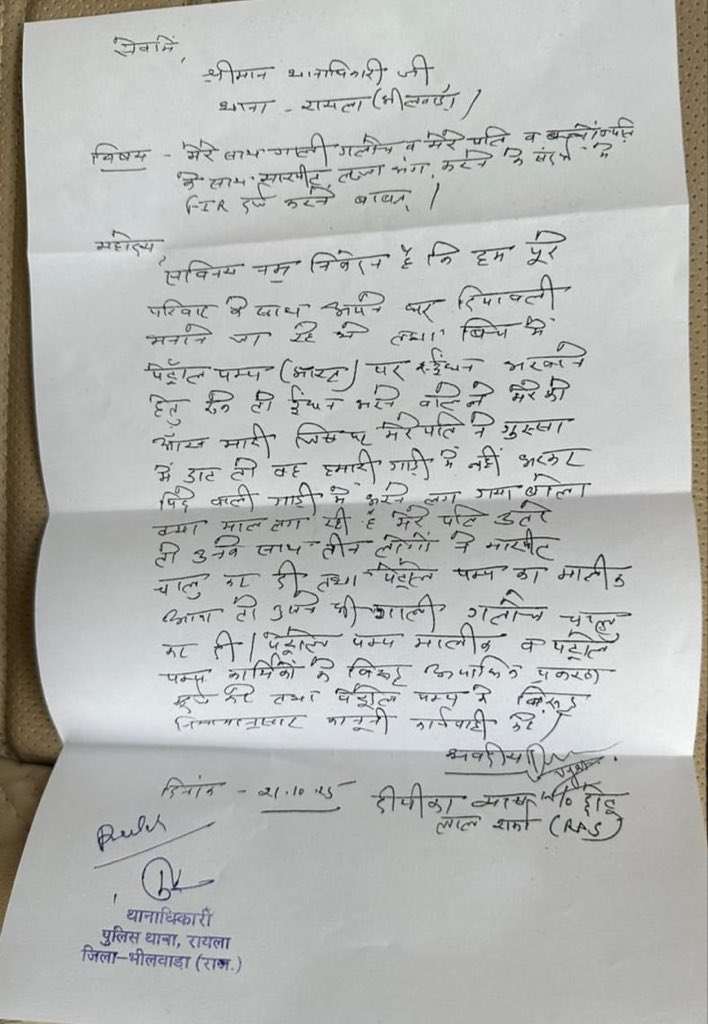 सेवामें,
श्रीमान थानाधिकारी जी
थाना - रायला (भीलवाड़ा)
विषय - मेरे साथ गाली गलोच व मेरे पति व बच्चों
के साथ मारपीट, लज्जा भंग, करने के संदर्भ में
FIR दर्ज करने बाबत् ।
महोदय,
सविनय नम्र निवेदन है कि हम पूरे
परिवार के साथ अपने घर दिपावली
मनाने जा रहे थे तथा बिच में
पेट्रोल पम्प (भारत) पर ईंधन भरवाने
हेतु रुके तो ईंधन भरने वाले ने मेरे को
आँख मारी जिस पर मेरे पति ने गुस्सा
में डाट तो वह हमारी गाड़ी में नहीं भरकर
पिछे वाली गाड़ी में भरने लग गया बोला
क्या माल लग रही है मेरे पति उतरे
तो उनके साथ तीन लोगों ने मारपीट
चालु कर दी तथा पेट्रोल पम्प का मालीक
आया तो उसने भी गाली गलोच चालु
कर दी । पेट्रोल पम्प मालीक व पेट्रोल
पम्प कार्मिकों के विरुद्ध अपराधिक प्रकरण
दर्ज करे तथा पेट्रोल पम्प के विरुद्ध
नियमानुसार कानूनी कार्यवाही करे ।
भवदीया
दिनांक - 21.10.25
दीपीका व्यास W/o छोटु
लाल शर्मा (RAS)
थानाधिकारी
पुलिस थाना, रायला
जिला-भीलवाडा (राज.)